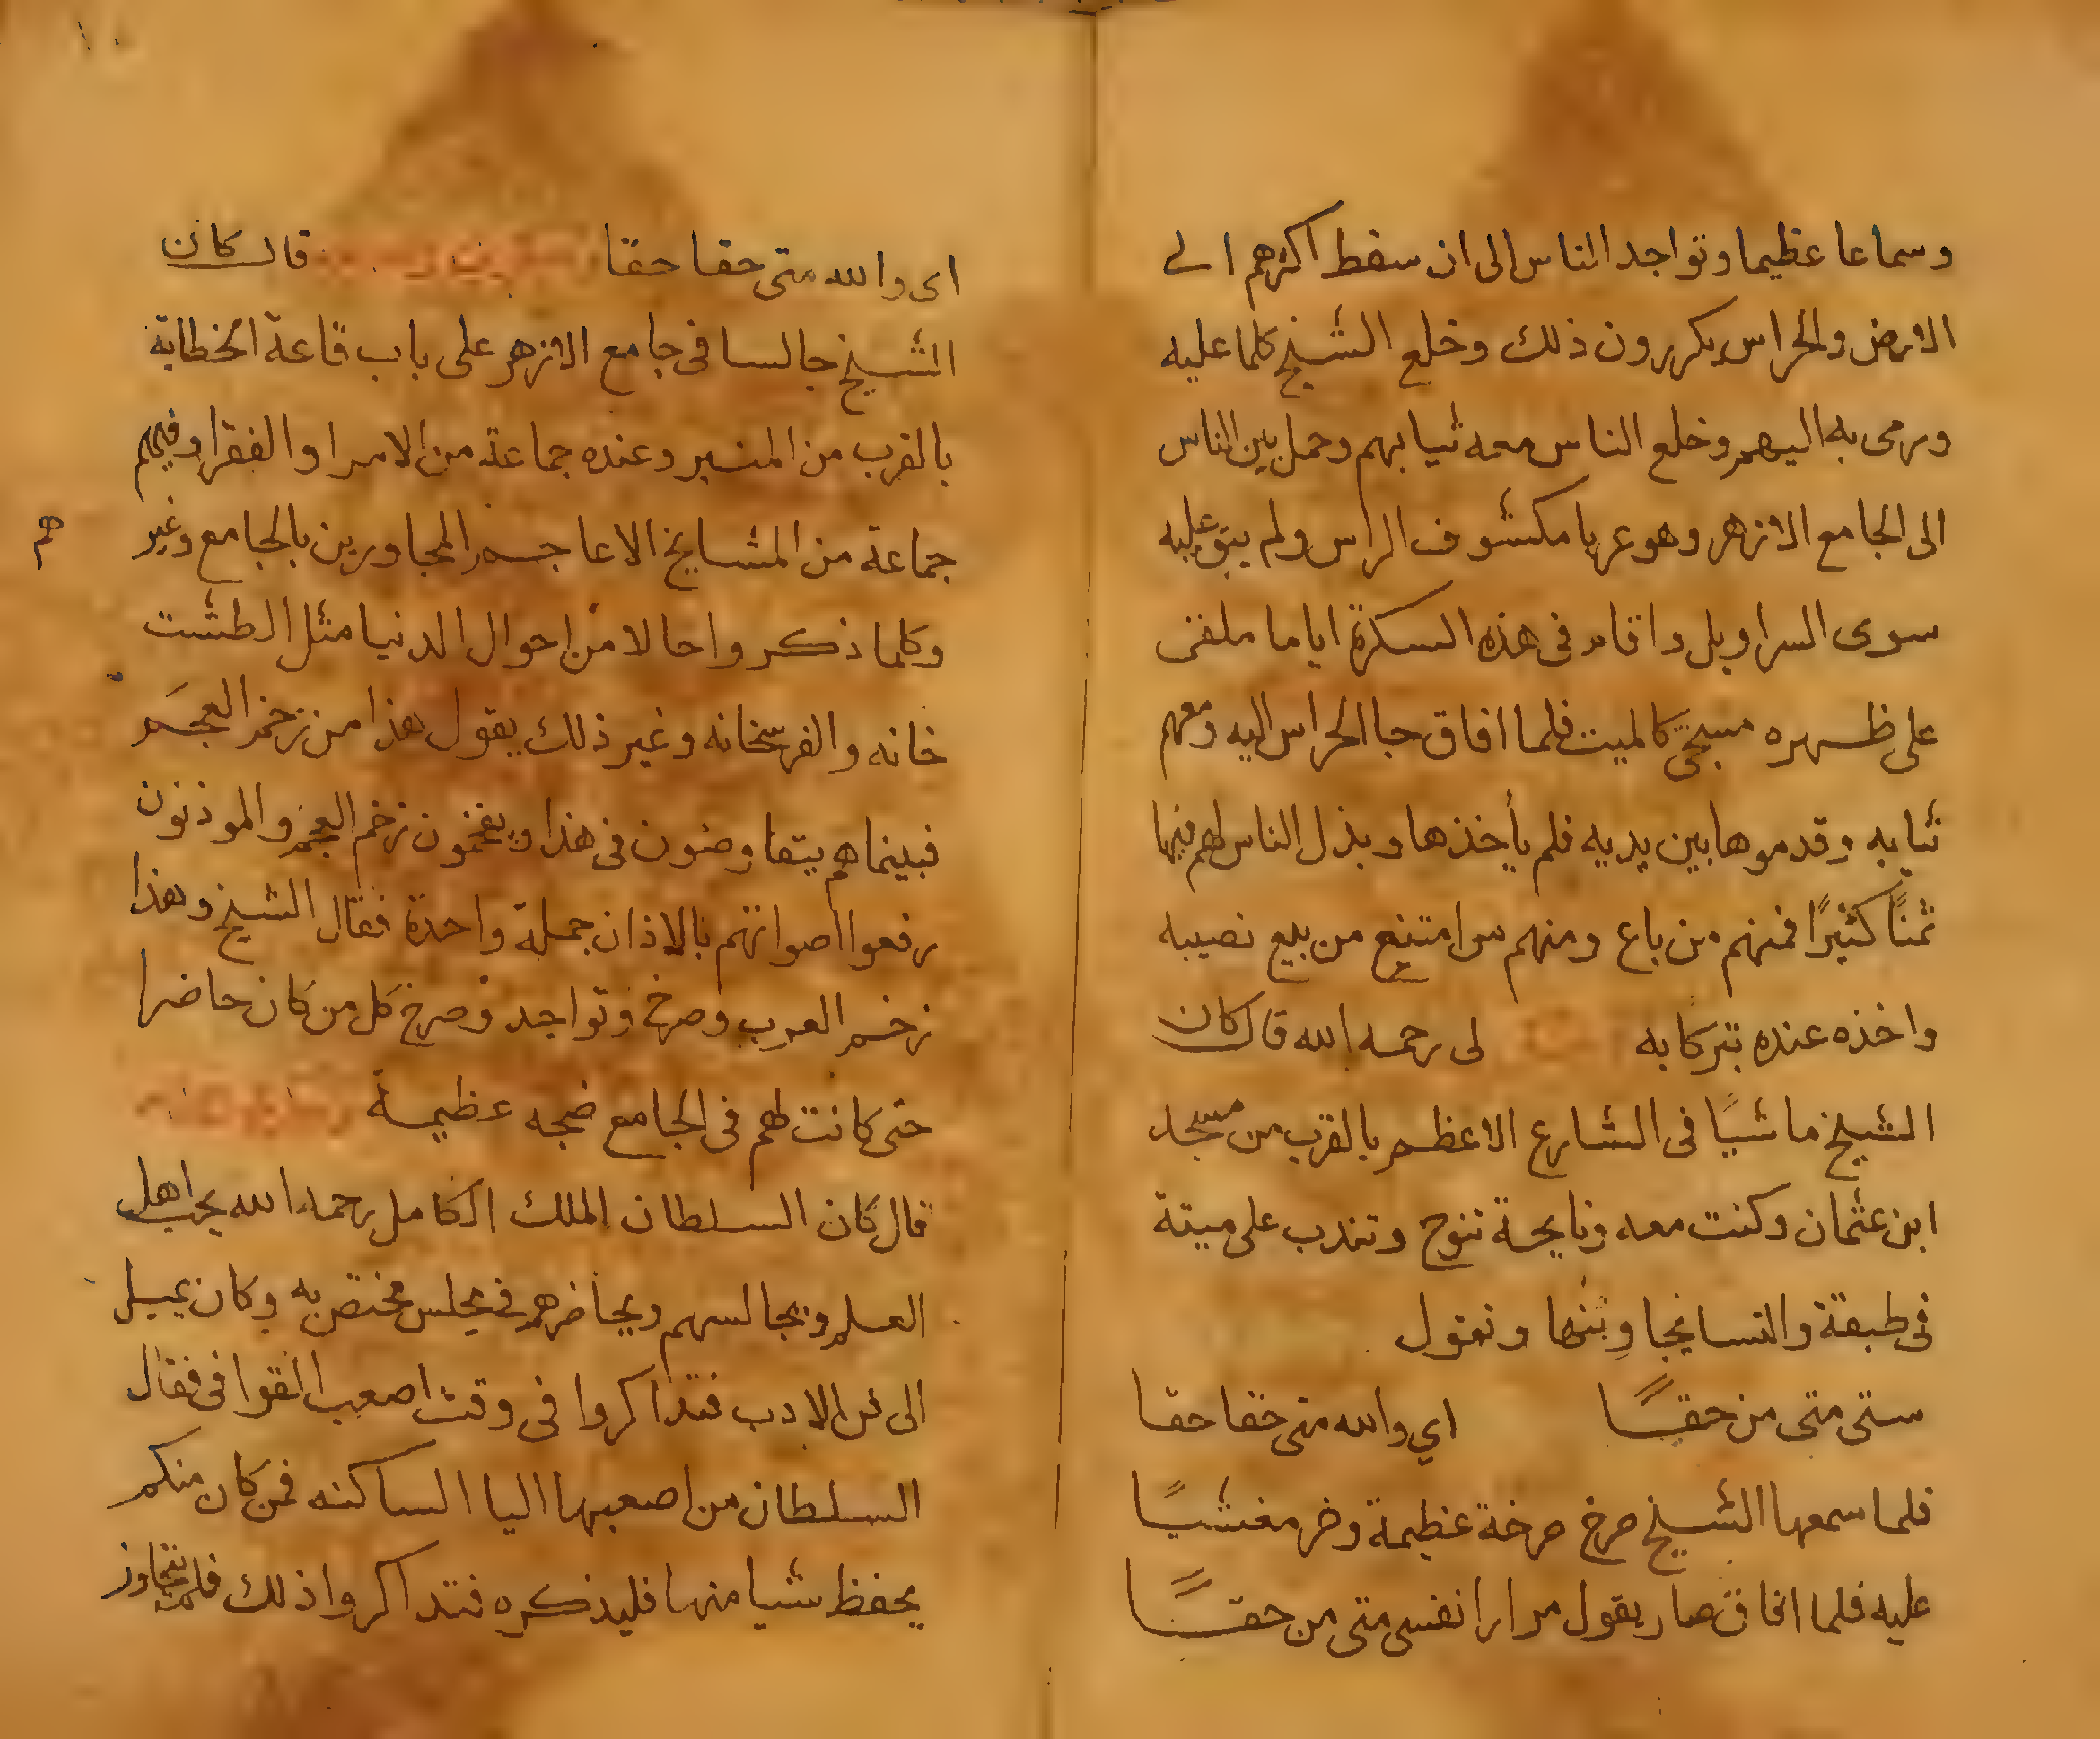 وسماعا عظيما وتواجد الناس الى ان سقط اكثرهم الى
الارض والحراس يكررون ذلك وخلع الشيخ كلما عليه
ورمى به اليهم وخلع الناس معه ثيابهم وحمل بين الناس
الى الجامع الازهر وهو عريا مكشوف الراس ولم يبق عليه
سوى السراويل واقام فى هذه السكرة اياما ملقى
على ظهره مسجى كالميت فلما افاق جا الحراس اليه ومعهم
ثيابه وقدموها بين يديه فلم يأخذها وبذل الناس لهم فيها
ثمنًا كثيرًا فمنهم من باع ومنهم من امتنع من بيع نصيبه
واخذه عنده تبركا به لى رحمه الله قال كان
الشيخ ماشيًا فى الشارع الاعظم بالقرب من مسجد
ابن عثمان وكنت معه ونايحة تنوح وتندب على ميتة
فى طبقة والنسا يجاوبنها وتقول
ستى متى من حقًا اي والله متى حقا حقا
فلما سمعها الشيخ صرخ صرخة عظيمة وخر مغشيًا
عليه فلما افاق صار يقول مرارا نفسى متى من حقًا
١٠
اى والله متى حقا حقا قال كان
الشيخ جالسا فى جامع الازهر على باب قاعة الخطابة
بالقرب من المنبر وعنده جماعة من الامرا والفقرا وفيهم
جماعة من المشايخ الاعاجم المجاورين بالجامع وغير
هم
وكلما ذكروا حالا من احوال الدنيا مثل الطشت
خانه والفرشخانه وغير ذلك يقول هذا من زخم العجم
فبينما هم يتفاوضون فى هذا ويفخمون زخم العجم والموذنون
رفعوا اصواتهم بالاذان جملة واحدة فقال الشيخ وهذا
زخم العرب وصرخ وتواجد وصرخ كل من كان حاضرا
حتى كانت لهم فى الجامع ضجه عظيمة
قال كان السلطان الملك الكامل رحمه الله يحب اهل
العلم ويجالسهم ويحاضرهم فى مجلس مختص به وكان يميل
الى فن الادب فتذاكروا فى وقت اصعب القوافى فقال
السلطان من اصعبها اليا الساكنه فمن كان منكم
يحفظ شيا منها فليذكره فتذاكروا ذلك فلم يتجاوز